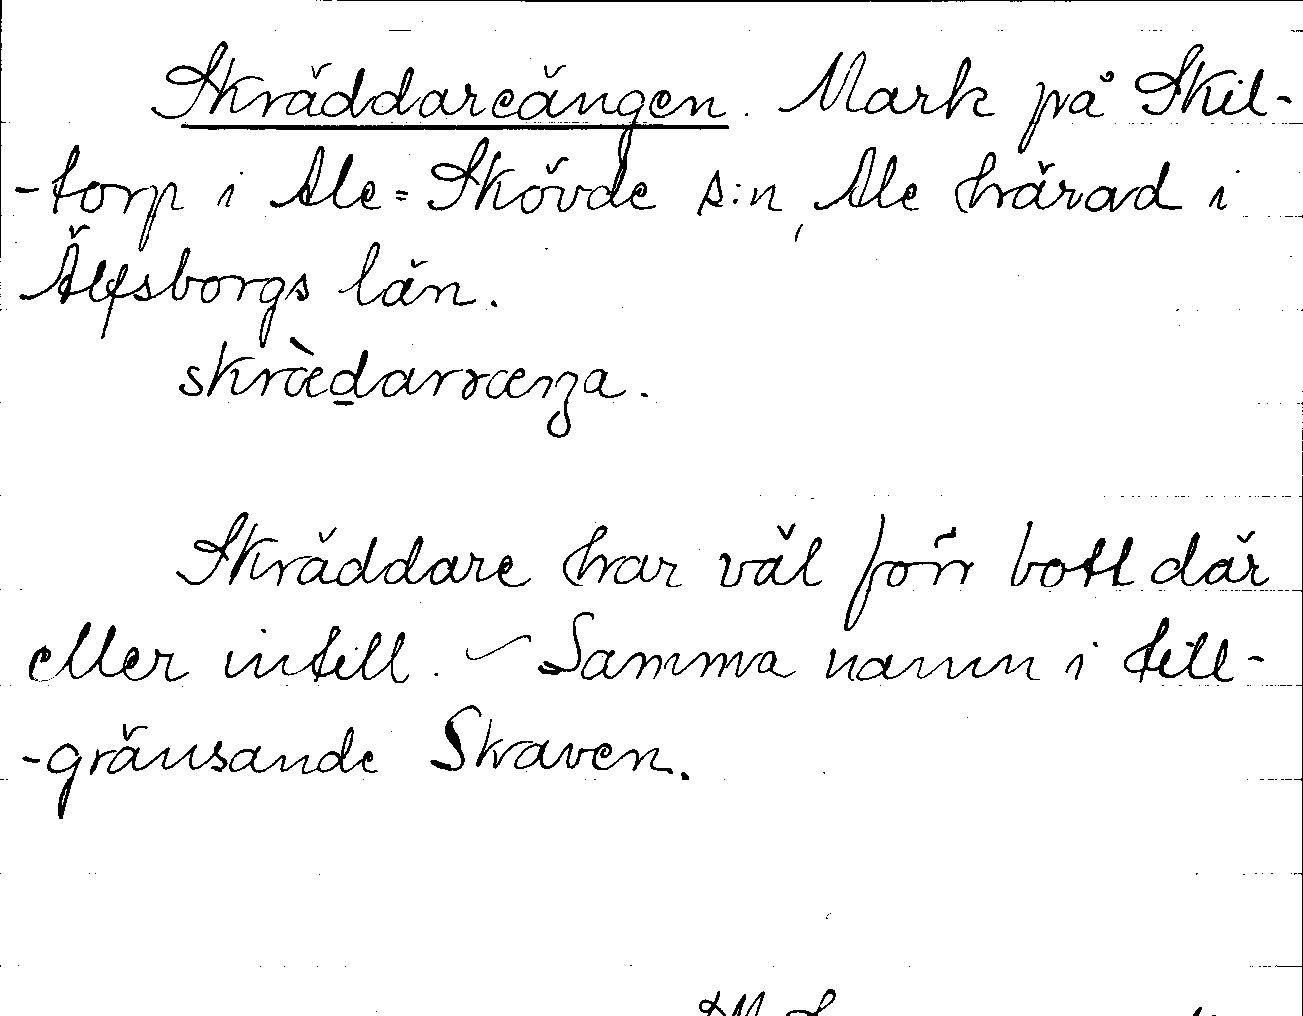 Skräddareängen. Mark på Skil-
-torp i Ale-Skövde s:n, Ale härad i
Älfsborgs län.
skræ̀darræŋa.
Skräddare har väl förr bott där
eller intill. – Samma namn i till-
-gränsande Skraven.